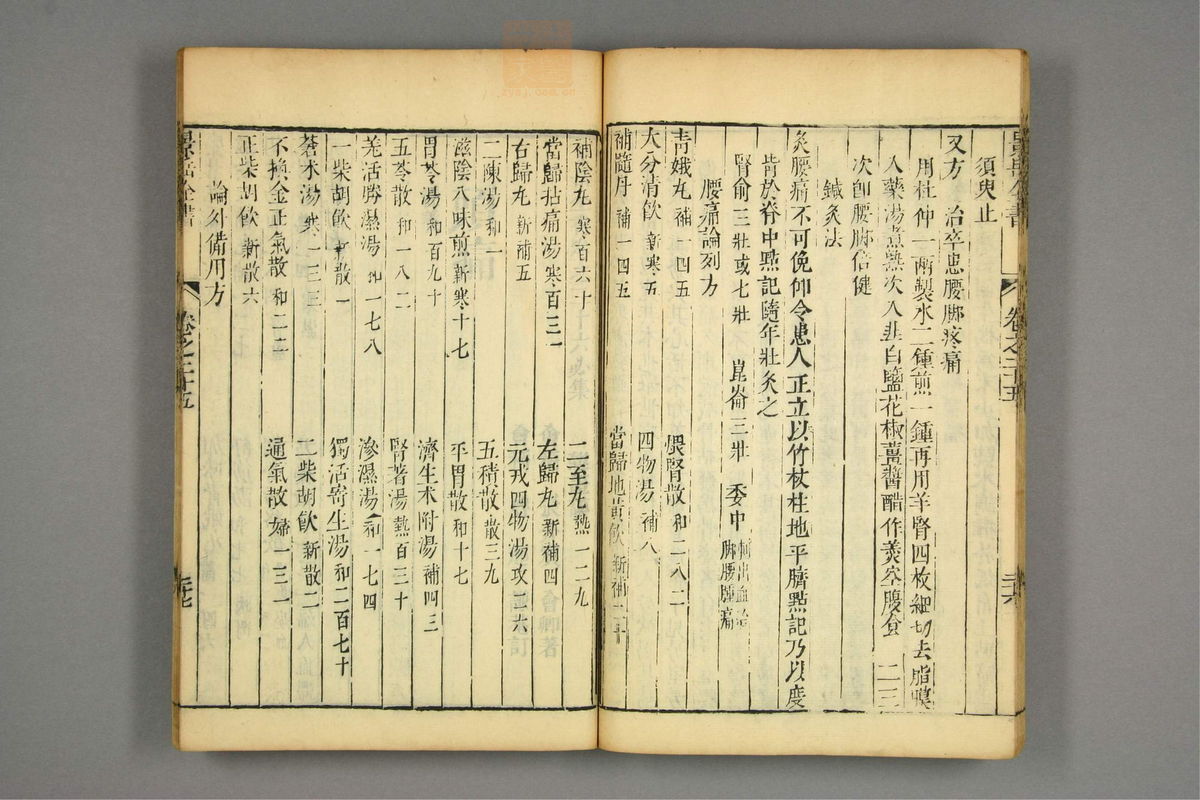 須臾止
又方 治卒患腰脚疼痛
用杜仲一兩製水二鍾煎一鍾再用羊腎四枚細切去脂膜
入藥湯煮熟次入韭白鹽花椒薑醬醋作羮空腹食 二三
次卽腰脚倍健
鍼灸法
灸腰痛不可俛仰令患人正立以竹杖柱地平臍點記乃以度
背於脊中點記隨年壯灸之
腎俞三壯或七壯 崑崙三壯 委中 刺出血治脚腰腫痛
腰痛論列方
靑娥丸 補一四五 煨腎散 和二八二
大分清飲 新寒五 四物湯 補八
補髓丹 補一四五 當歸地黃飲 新補二十
卷之二十五
二十六
補陰丸 寒百六十 二至丸 熱一二九
當歸拈痛湯 寒百三 左歸丸 新補四
右歸丸 新補五 元戎四物湯 攻
二陳湯 和二 五積散 散三九
滋陰八味煎 新寒十七 平胃散 和十七
胃苓湯 和百九十 濟生术附湯 補四三
五苓散 和一八二 腎著湯 熱百三十
羌活勝濕湯 和一七八 滲濕湯 和一七四
一柴胡飲 新散一 獨活寄生湯 和二百七十
蒼术湯 寒一三三 二柴胡飲 新散二
不換金正氣散 和二 通氣散 婦一三
正柴胡飲 新散六
論外備用方
景岳全書
卷之二十五
二十七